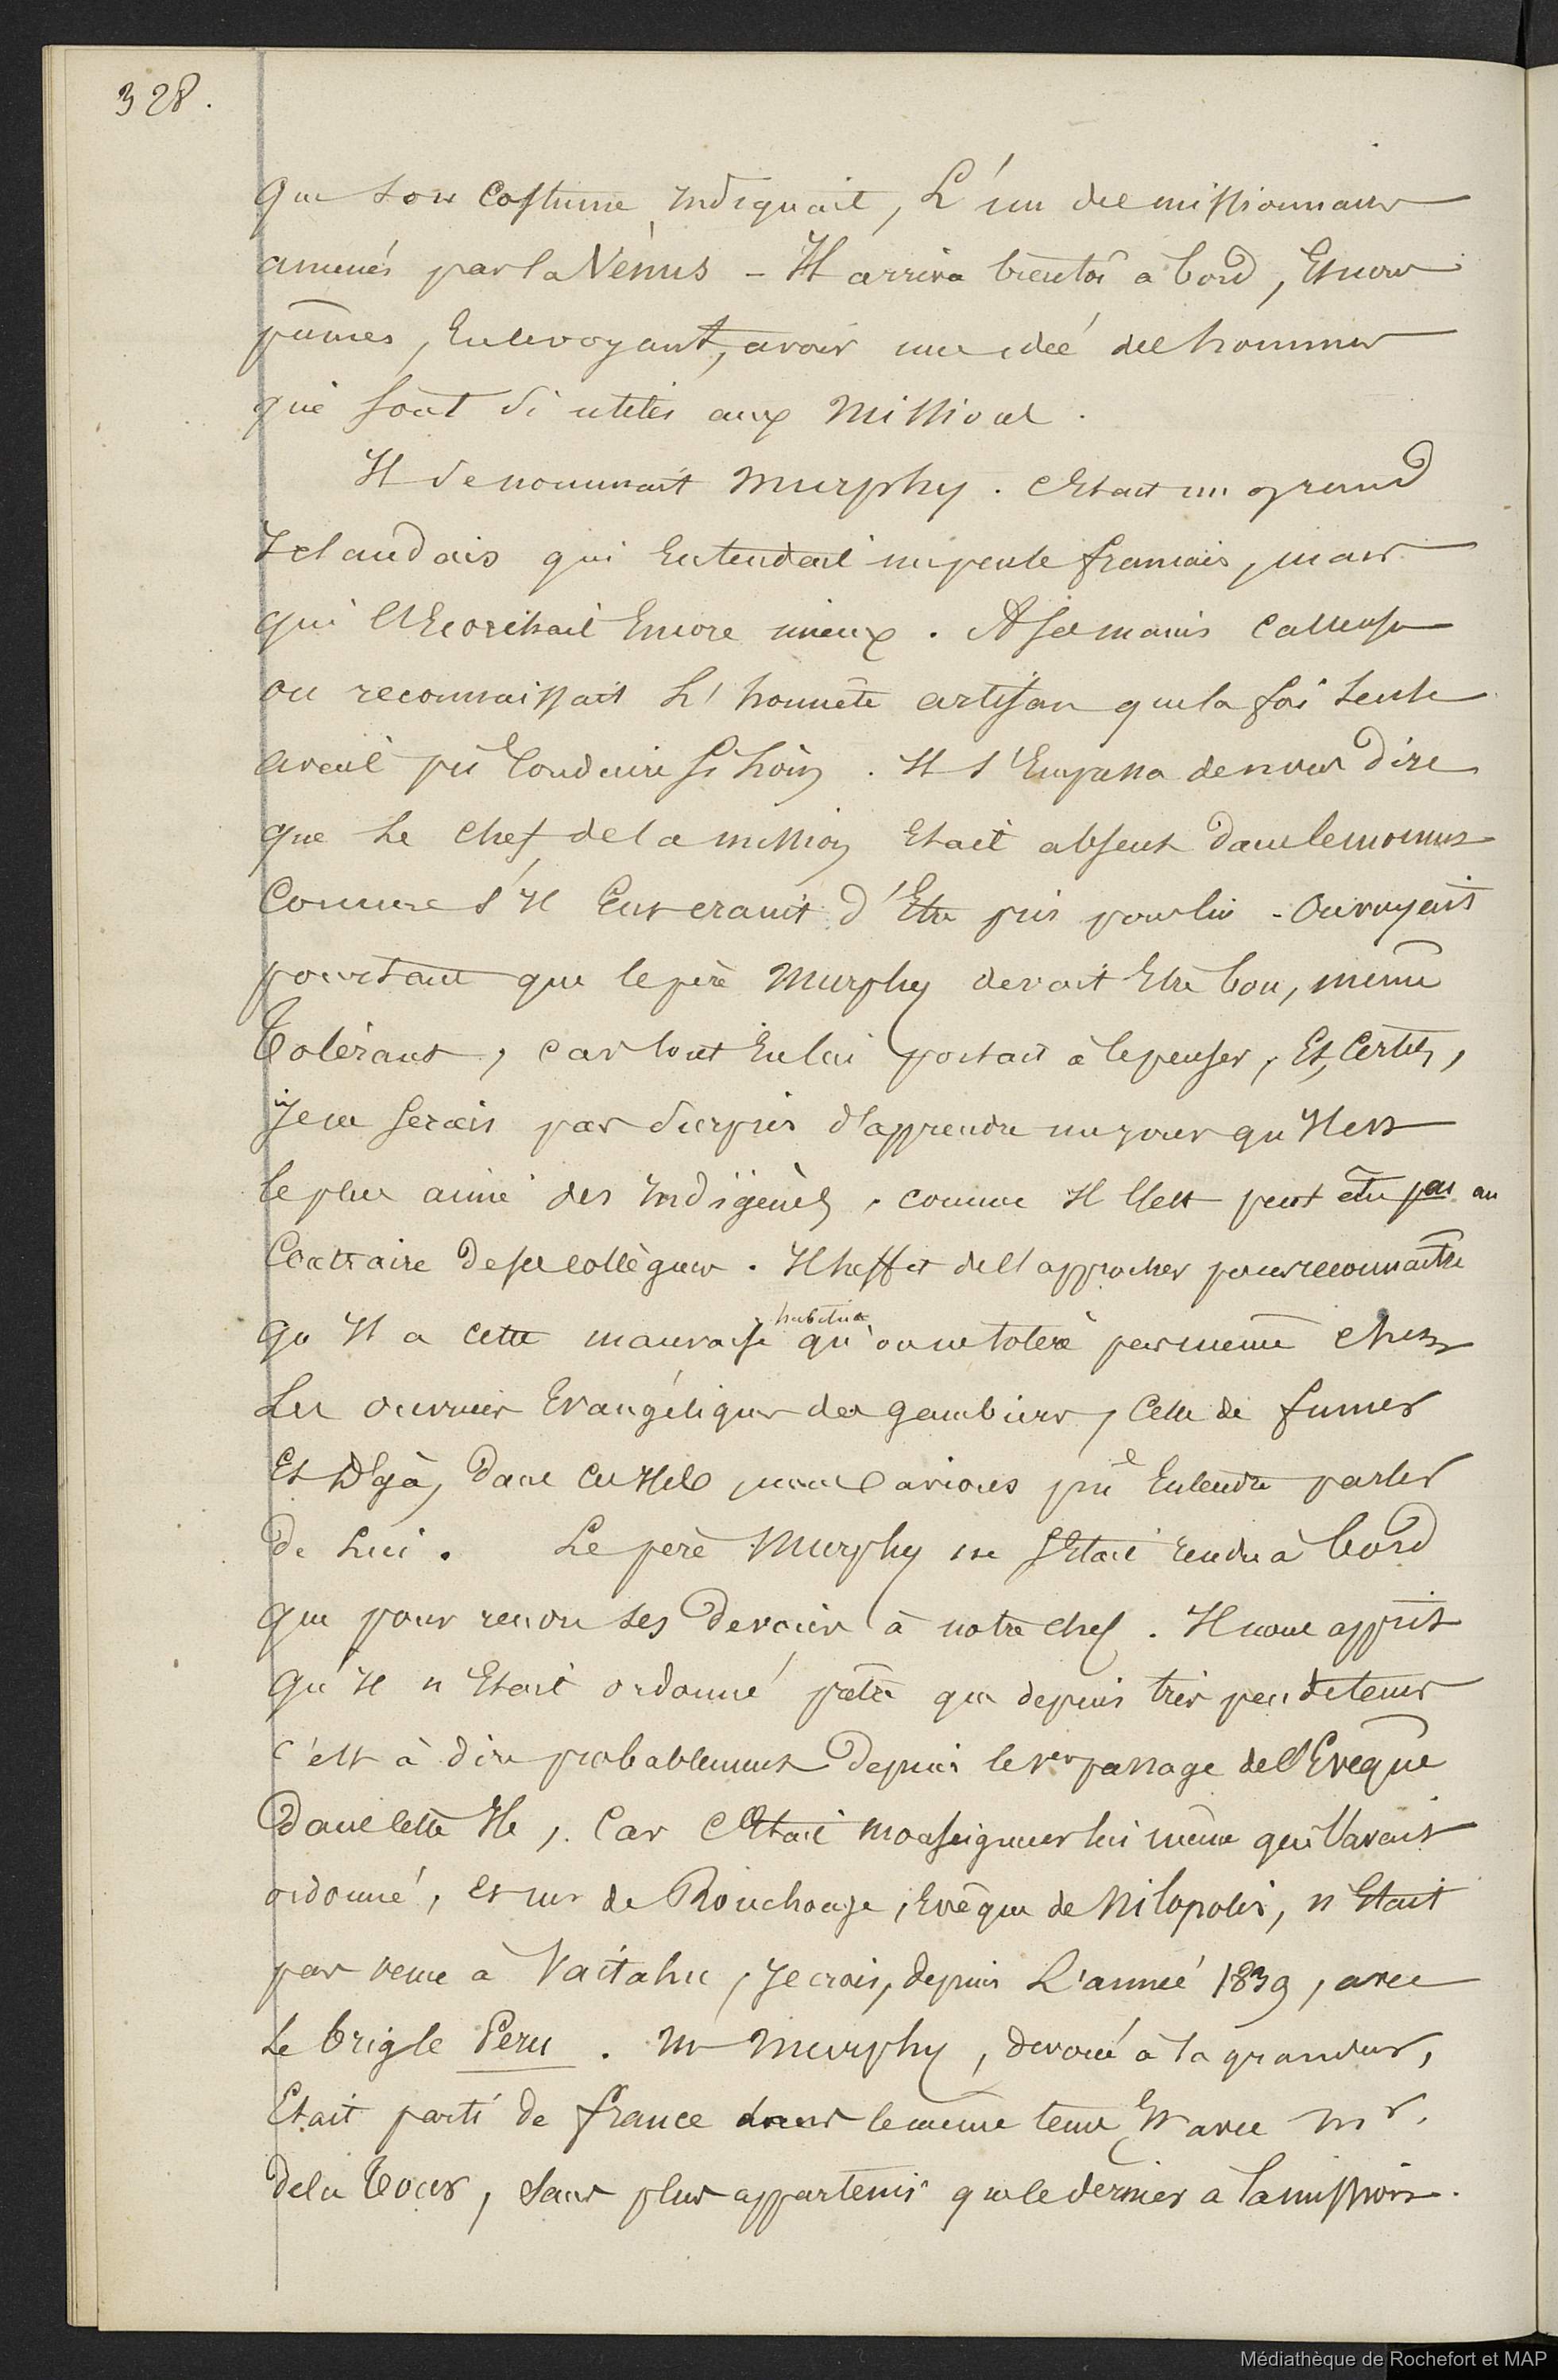 328.
que son Costume indiquait, L'un des missionnaires
amenés par la Vénus - Il arriva bientôt à bord, Et nous
pûmes, En le voyant, avoir une idée des hommes
qui sont si utiles aux Missions.
Il se nommait Murphy. C'Etait un grand
Irlandais qui Entendait un peu le français, mais
qui l'Ecorchait Encore mieux. A ses mains calleuses
on reconnaissait L'honnête artisan que la foi seule
avait pû Conduire si loin. Il s'Empressa de nous dire
que Le Chef de la mission Etait absent dans le moment
Comme s'il Eut craint d'Etre pris pour lui - On voyait
pourtant que le père Murphy devait Etre bon, même
Tolérant, car tout En lui portait à le penser, Et, Certes,
je ne serais pas surpris d'apprendre un jour qu'il est
le plus aimé des indigènes, comme il l'est peut être pas au
Contraire de ses collègues. Il suffit de l'approcher pour reconnaître
qu'il a cette mauvaise habitude qu'on ne tolère pas même chez
Les ouvriers Evangéliques des gambiers, Celle de fumer
Et Déjà, dans ces Iles nous avions pû Entendre parler
de Lui. Le père Murphy ne s'Etait rendu à bord
que pour rendre ses Devoirs à notre chef. Il nous apprit
qu'il n'Etait ordonné prêtre que depuis très peu de tems
c'est à dire probablement Depuis le 1er passage de l'Evêque
Dans cette Ile, Car C'Etait Monseigneur lui même qui l'avait
ordonné, et mr de Rouchouze, Evêque de Nilopolis, n'Etait
pas venu à Vaitahu, je crois, depuis L'année 1839, avec
Le brig le Peru. Mr Murphy, dévoué à sa grandeur,
Etait parti de France dans le même tems Et avec Mr.
De la Tour, sans plus appartenir que le dernier à la mission.
Médiathèque de Rochefort et MAP